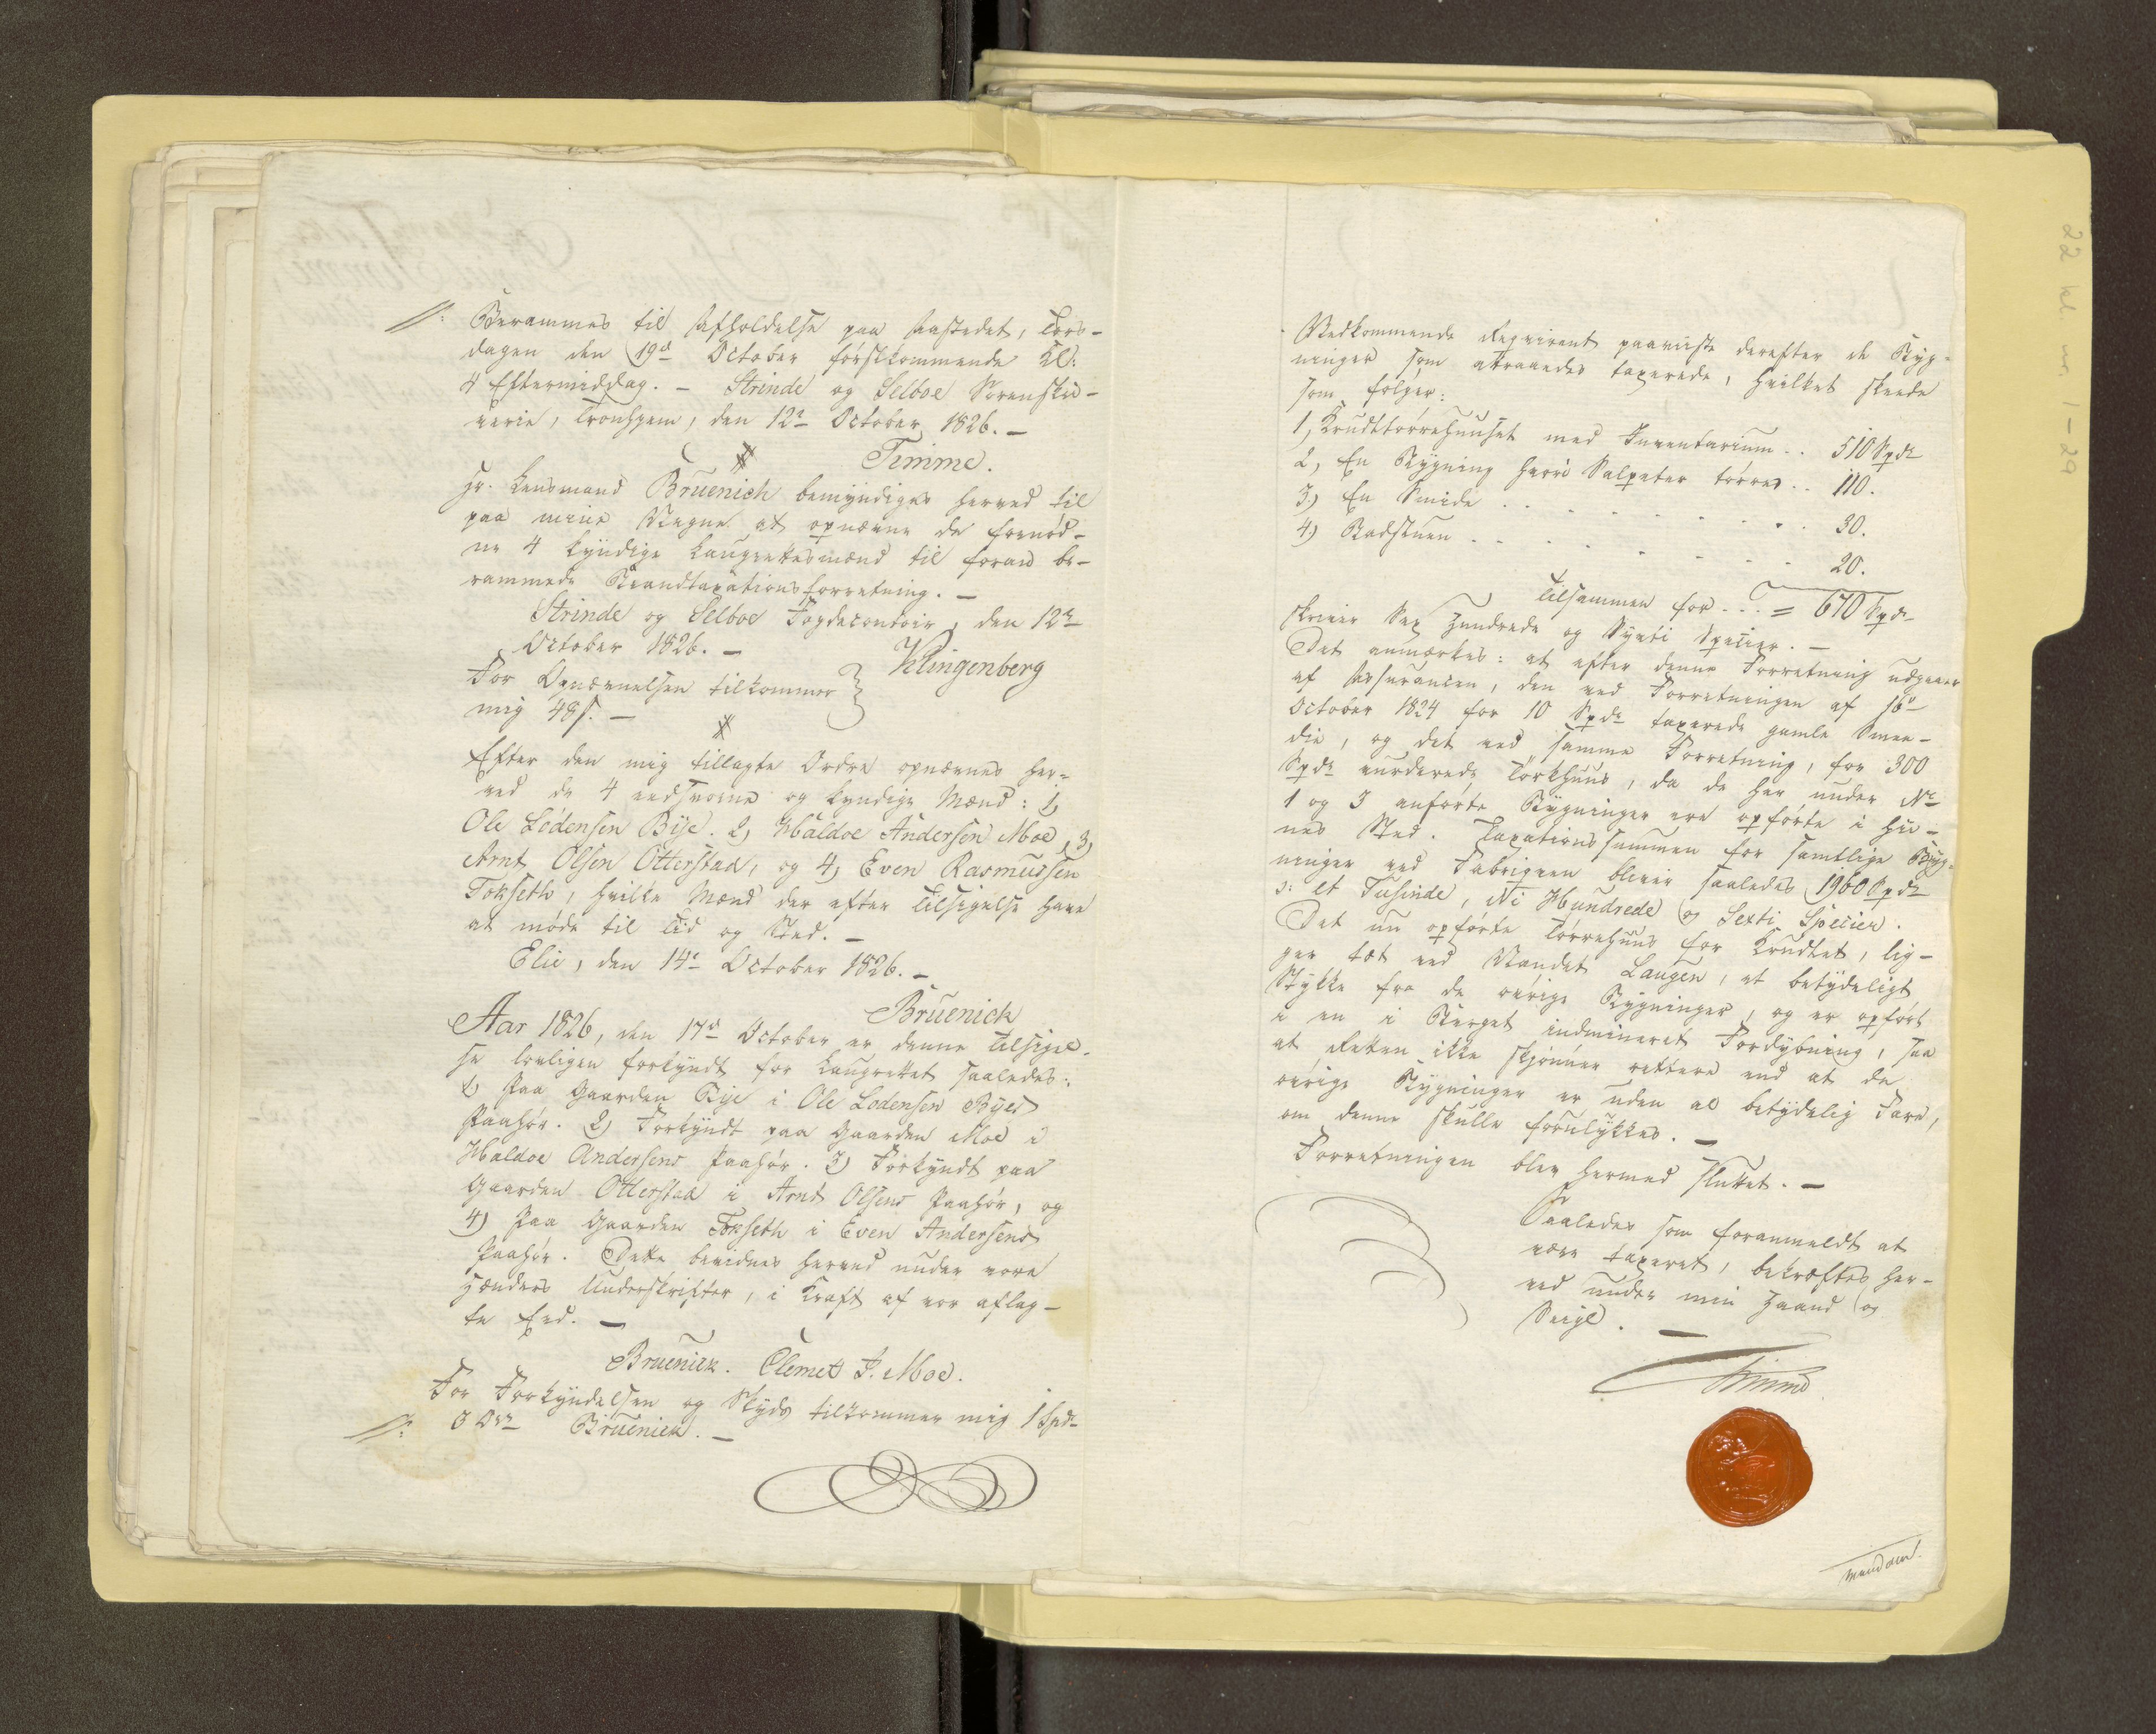 //: Berammes til Afholdelse paa Aastedet, Tors-
dagen den 19d October førstkommende Kl:
4 Eftermiddag. – Strinde og Selboe Sorenskri-
verie, Tronhjem, den 12te October 1826. –
Timme.
Hr. Lensmand Bruenich bemyndiges herved til
paa mine Vegne at opnævne de fornød-
ne 4 kyndige Laugrettesmænd til foran be-
rammede Brandtaxationsforretning. –
Strinde og Selboe Fogdecontoir, den 12te
October 1826. –
Klingenberg
For Opnævnelsen tilkommer
mig 48 s. –
Efter den mig tillagte Ordre opnævnes her-
ved de 4 eedsvorne og kyndige Mænd: 1,
Ole Lodensen Bye. 2, Haldoe Andersen Moe, 3,
Arnt Olsen Otterstad, og 4, Even Rasmussen
Fokseth, hvilke Mænd der efter Tilsigelse have
at møde til Tid og Sted. –
Elie, den 14de October 1826. –
Bruenich
Aar 1826, den 17de October er denne Tilsigel-
se lovligen forkyndt for Laugrettet saaledes:
1) Paa Gaarden Bye i Ole Lodensen Byes
Paahør. 2) Forkyndt paa Gaarden Moe i
Haldoe Andersens Paahør. 3) Forkyndt paa
Gaarden Otterstad i Arnt Olsens Paahør, og
4) Paa Gaarden Fokseth i Even Andersens
Paahør. Dette bevidnes herved under vore
Hænders Underskrifter, i Kraft af vor aflag-
te Eed. –
Bruenich. Clemet J. Moe.
For Forkyndelsen og Skyds tilkommer mig 1 Spd
//: 3 Ort Bruenich. –
Vedkommende Reqvirent paaviste derefter de Byg-
ninger som attraaedes taxerede, hvilket skeede
som følger:
1, Krudttørrehuuset med Inventarium .. 510 Spd
2, En Bygning hvori Salpeter tørres .. 110.
3) En Smide . . . . . . . . 30.
4) Badstuen . . . . . . . 20.
Tilsammen for . . . = 670 Spd
skriver Sex Hundrede og Syvti Specier. –
Det anmærkes: at efter denne Forretning udgaaer
af Assurancen, den ved Forretningen af 16de
October 1824 for 10 Spd taxerede gamle Smee-
die, og det ved samme Forretning, for 300
Spd vurderede Tørkhuus, da de her under No
1 og 3 anførte Bygninger ere opførte i hii-
nes Sted. Taxationssummen for samtlige Byg-
ninger ved Fabriqven bliver saaledes 1960 Spd
ɔ: et Tusinde, Ni Hundrede og Sexti Specier.
Det nu opførte Tørrehuus for Krudtet, lig-
ger tæt ved Vandet Laugen, et betydeligt
Stykke fra de øvrige Bygninger, og er opført
i en i Bierget indmineret Fordybning, saa
at Retten ikke skjønner rettere end at de
øvrige Bygninger er uden al betydelig Fare,
om denne skulle forulykkes. –
Forretningen blev hermed sluttet. –
Saaledes som foranmeldt at
være taxeret, bekræftes her-
ved under min Haand og
Seigl. –
Timme
22 kl nr 1-29